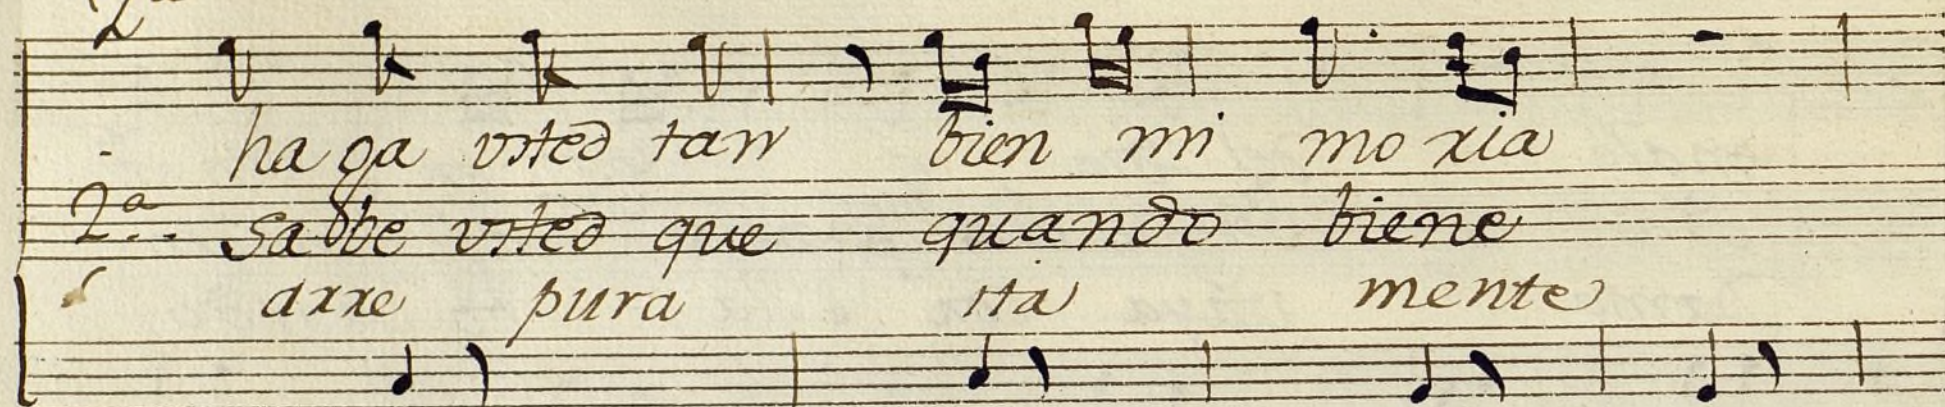 haga vsted tan bien mi moxia
2ª.. Sabbe vsted que quando biene
axxe pura sta mente